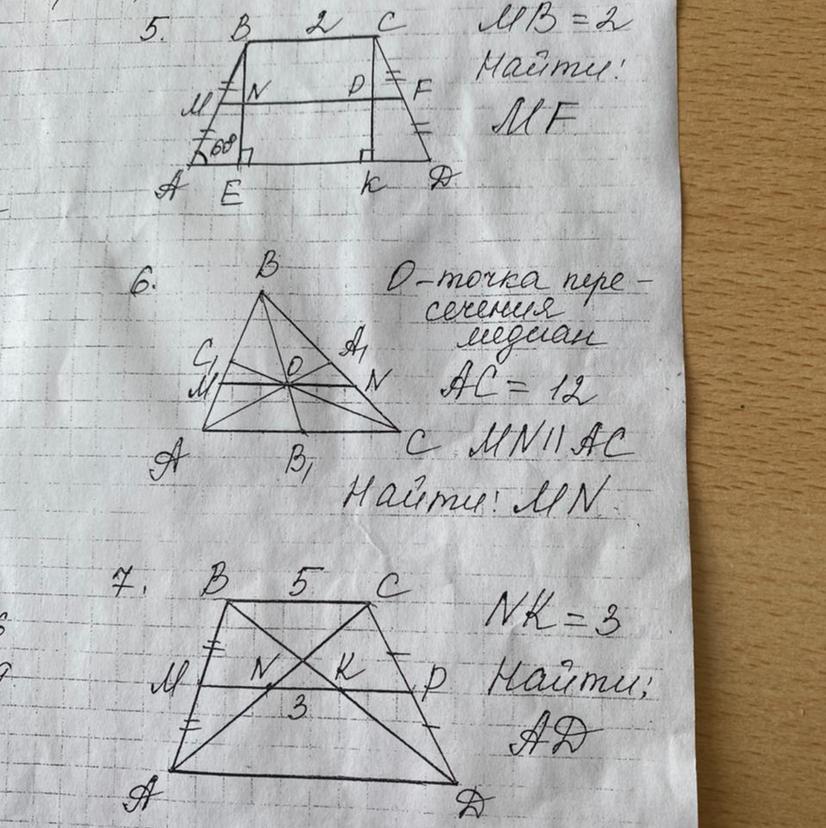 5. B 2 C
MB = 2
Найти:
M N P F
MF
60°
A E K D
6. B
O - точка пере-
сечения
медиан
C₁ O A₁
M N
AC = 12
A B₁ C
MN || AC
Найти: MN
7. B 5 C
NK = 3
M N K P
Найти:
3
AD
A D